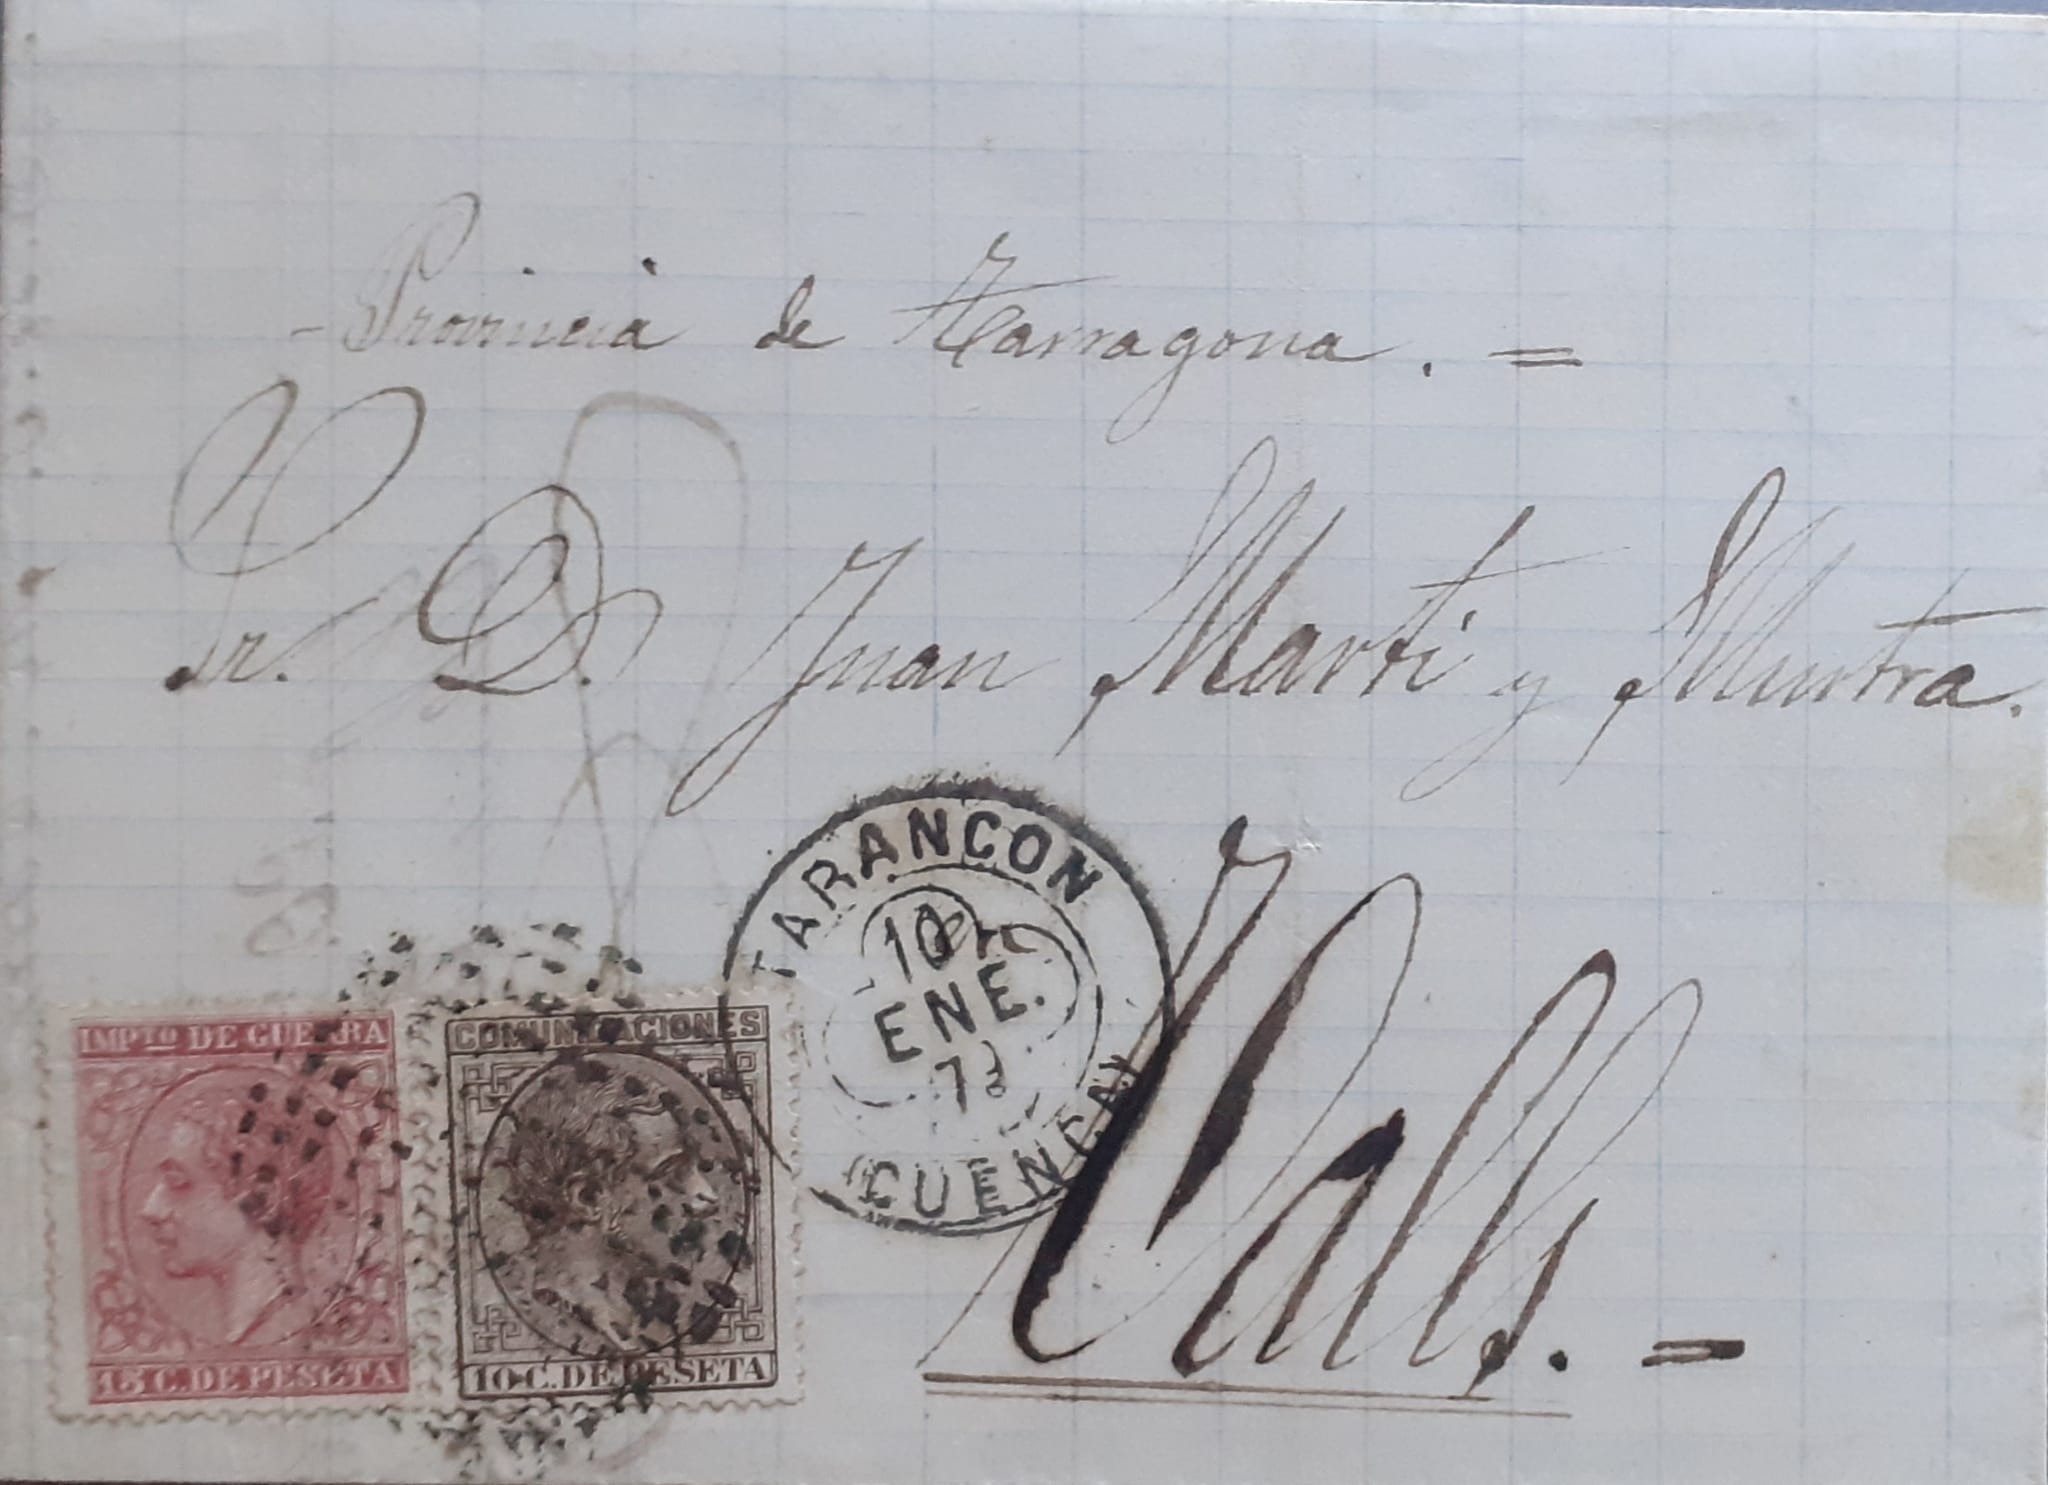 - Provincia de Tarragona. =
Sr. D. Juan Martí y Muntra.
TARANCON
10
ENE.
(CUENCA)
Valls. =
IMPTO DE GUERRA
15 C. DE PESETA
COMUNICACIONES
10 C. DE PESETA